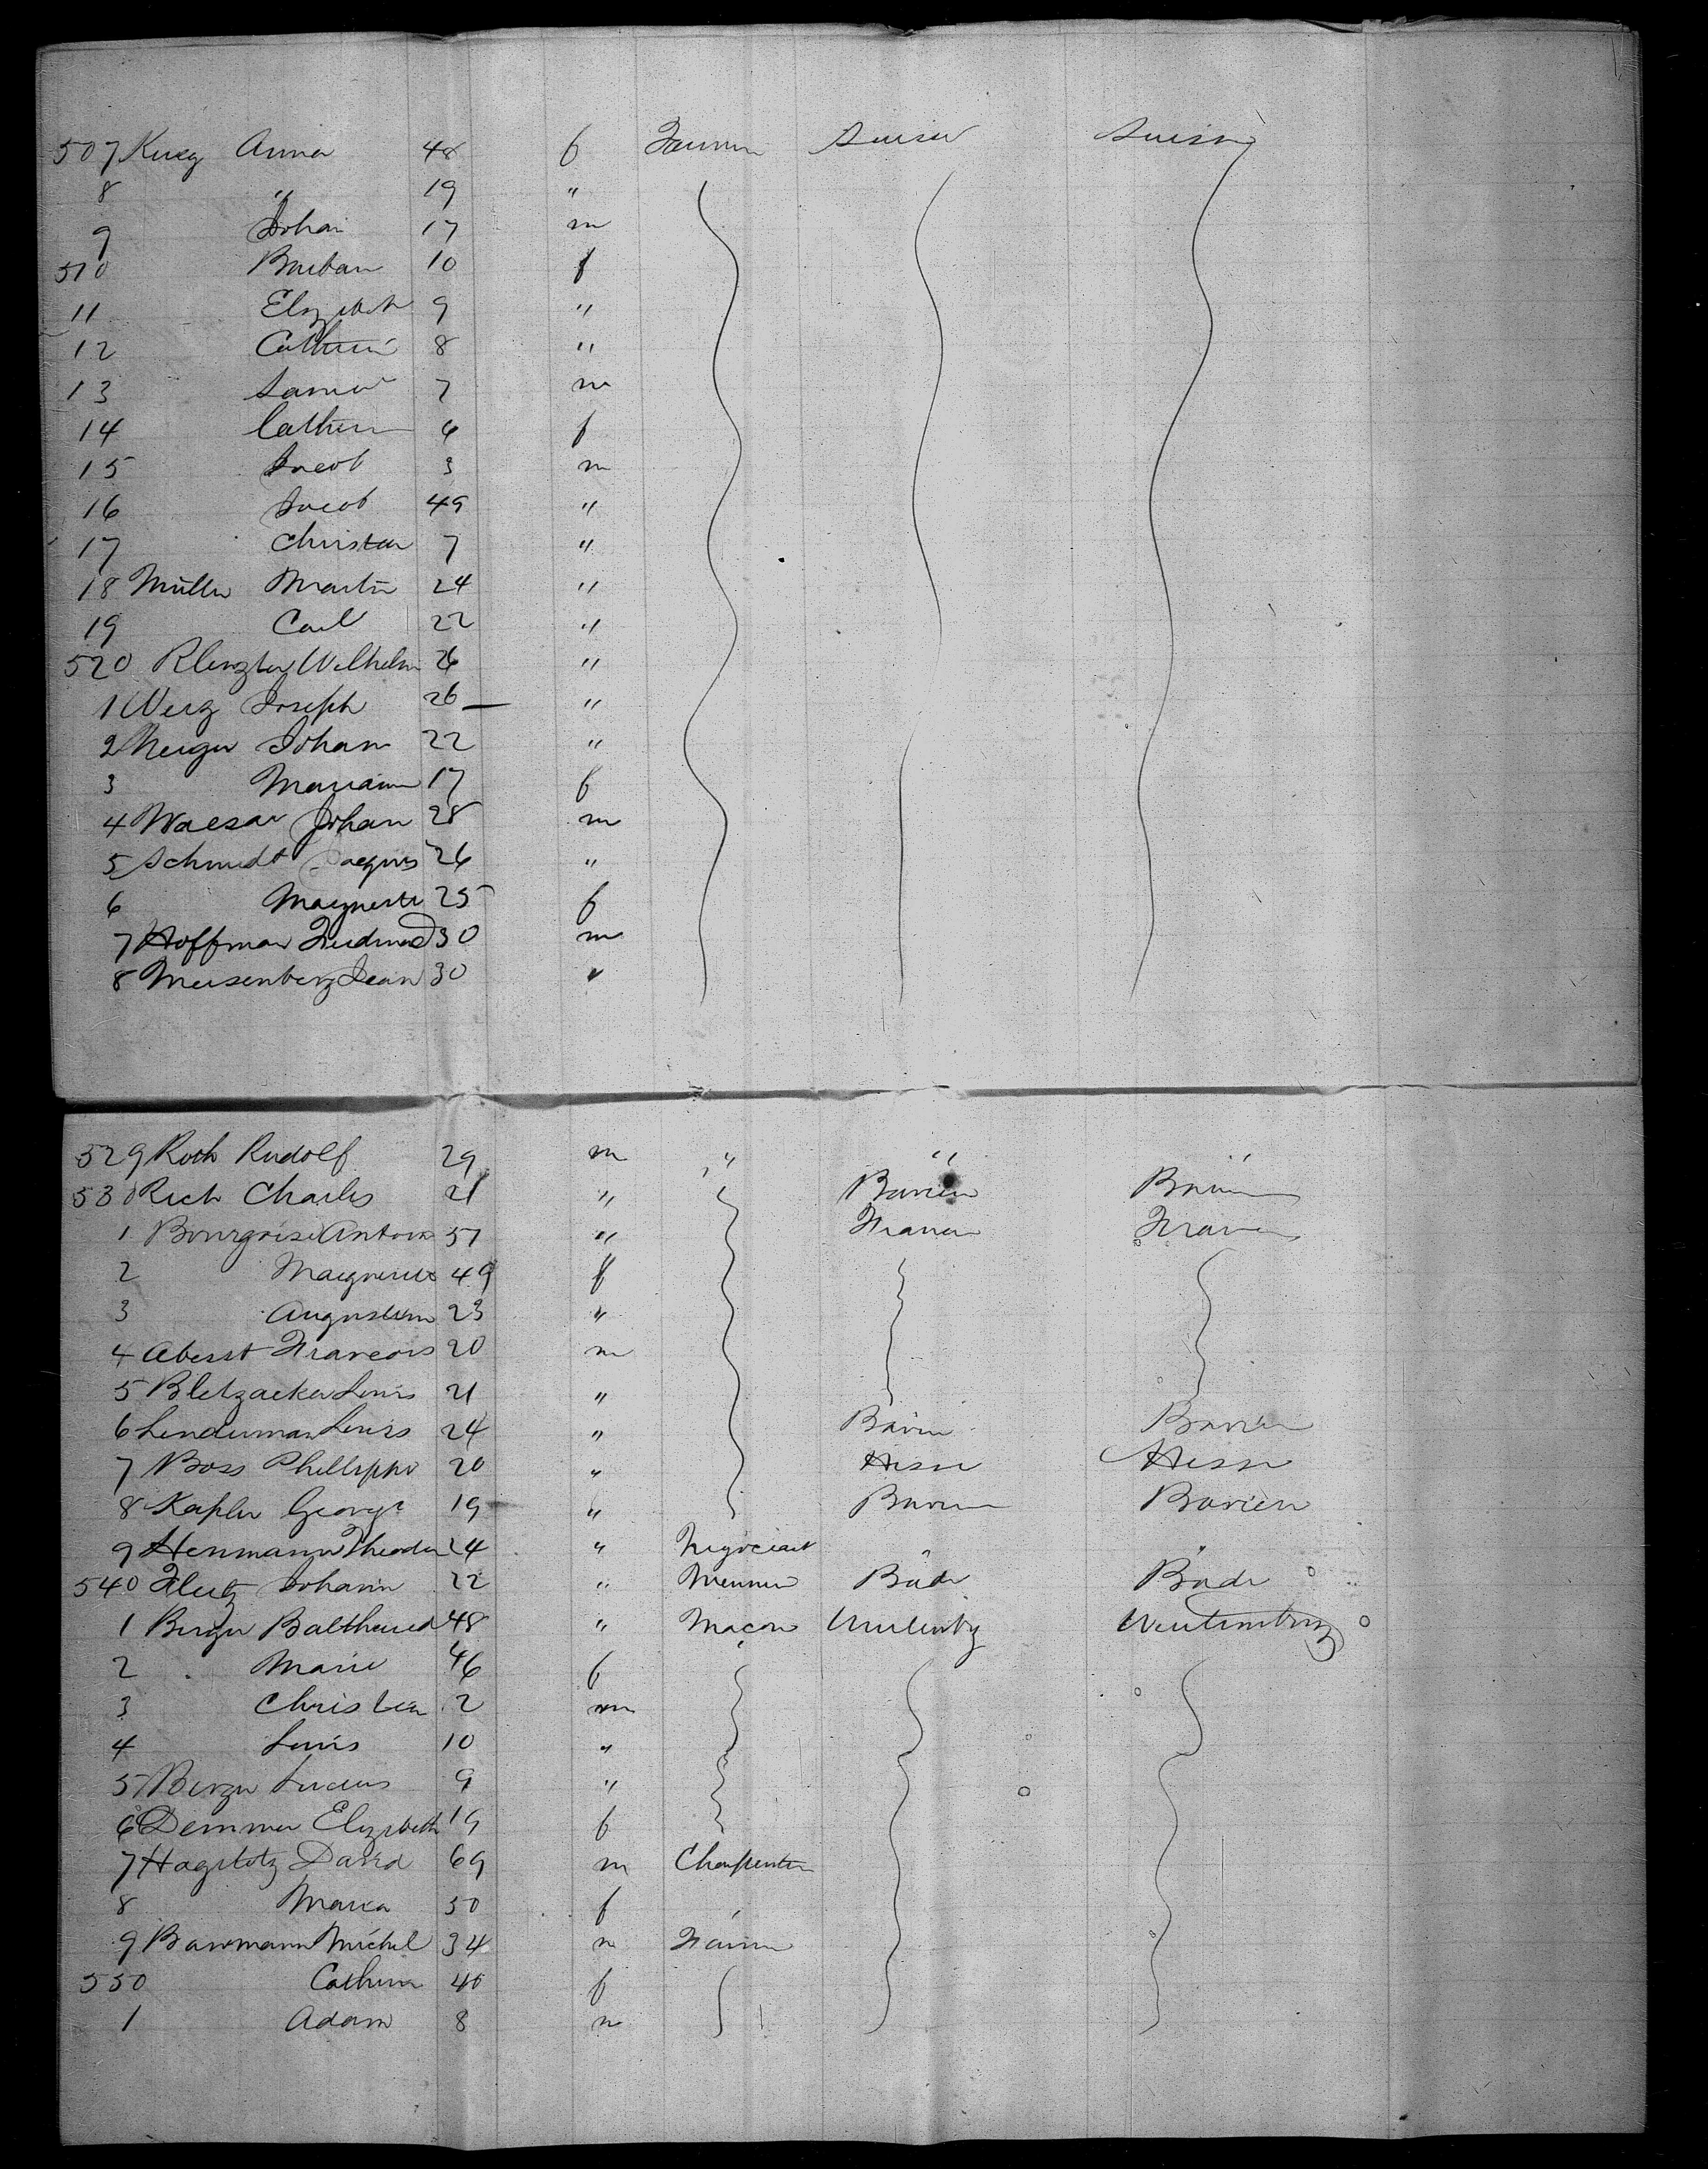 507 Kueg Anna 48 f Farmer Suisse Suisse
8 " 19 "
9 Johan 17 m
510 Barbara 10 f
11 Elizabeth 9 "
12 Catherin 8 "
13 7 m
14 Catherin 6 f
15 Jacob 3 m
16 Jacob 49 "
17 Christian 7 "
18 Müller Martin 24 "
19 Carl 22 "
520 Wilhelm 26 "
1 Werz Joseph 26 "
2 Johann 22 "
3 Mariann 17 f
4 Waeser Johan 28 m
5 Schmidt Jacques 26 "
6 Marguerite 25 f
7 Hoffman 30 m
8 Meisenberg Jean 30 "
529 Roth Rudolf 29 m " " "
530 Rich Charles 21 " " Bavien Bavien
1 Bourgoise Antoin 51 " France France
2 Marguerite 49 f
3 Augustin 23 "
4 Aberst Francois 20 m
5 Bletzacker Louis 21 "
6 Linderman Louis 24 " Bavien Bavien
7 Boss Phillippe 20 " Hesse Hesse
8 Kapler George 19 " Bavien Bavien
9 Henmann Theodor 24 " Negociant " "
540 Johann 22 " Bade Bade
1 Berger 48 " Macon Wurtemberg
2 Marie 46 f
3 Christian 2 m
4 Louis 10 "
5 Berger 9 "
6 Demmer Elizabeth 19 f
7 Hagelotz David 69 m Charpentier
8 Maria 50 f
9 Bawmann Michel 34 m Farmer
550 Catherin 40 f
1 Adam 8 m